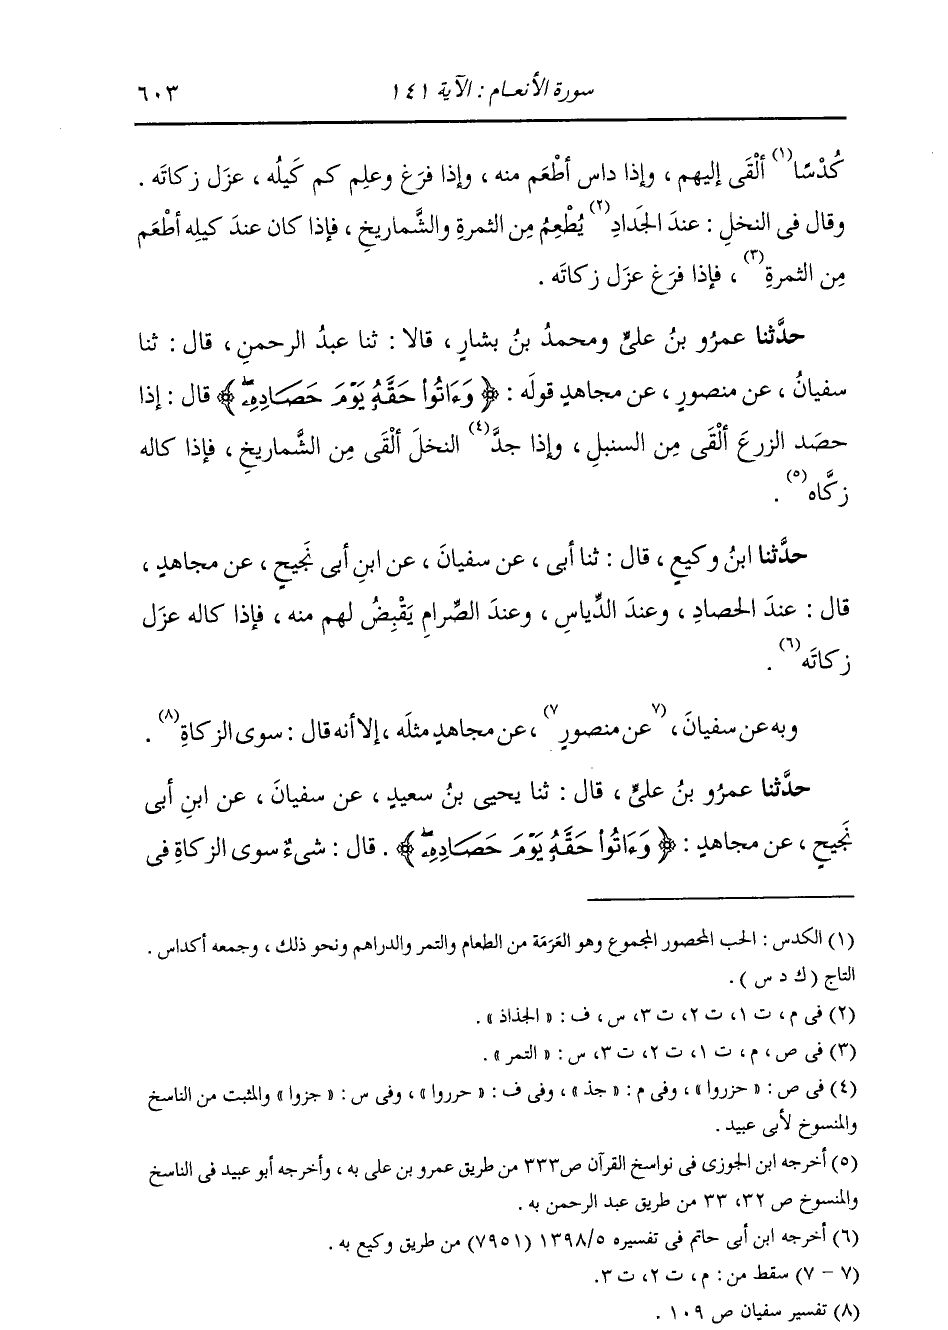 سورة الأنعام : الآية ١٤١ ٦٠٣
كُدْسًا(١) ألْقَى إليهم ، وإذا داس أطْعَم منه ، وإذا فرَغ وعلِم كم كَيلُه ، عزَل زكاتَه .
وقال فى النخلِ : عندَ الجَدادِ(٢) يُطْعِمُ مِن الثمرةِ والشَّماريخِ ، فإذا كان عندَ كيلِه أطْعَم
مِن الثمرةِ(٣) ، فإذا فرَغ عزَل زكاتَه .
حدَّثنا عمرُو بنُ علىٍّ ومحمدُ بنُ بشارٍ ، قالا : ثنا عبدُ الرحمنِ ، قال : ثنا
سفيانُ ، عن منصورٍ ، عن مجاهدٍ قولَه : ﴿ وَءَاتُوا۟ حَقَّهُۥ يَوْمَ حَصَادِهِۦۖ ﴾ قال : إذا
حصَد الزرعَ ألْقَى مِن السنبلِ ، وإذا جدَّ(٤) النخلَ ألْقَى مِن الشَّماريخِ ، فإذا كاله
زكَّاه(٥) .
حدَّثنا ابنُ وكيعٍ ، قال : ثنا أبى ، عن سفيانَ ، عن ابنِ أبى نَجيحٍ ، عن مجاهدٍ ،
قال : عندَ الحصادِ ، وعندَ الدِّياسِ ، وعندَ الصِّرامِ يَقْبِضُ لهم منه ، فإذا كاله عزَل
زكاتَه(٦) .
وبه عن سفيانَ ، (٧عن منصورٍ٧) ، عن مجاهدٍ مثلَه ، إلا أنه قال : سوى الزكاةِ(٨) .
حدَّثنا عمرُو بنُ علىٍّ ، قال : ثنا يحيى بنُ سعيدٍ ، عن سفيانَ ، عن ابنِ أبى
نَجيحٍ ، عن مجاهدٍ : ﴿ وَءَاتُوا۟ حَقَّهُۥ يَوْمَ حَصَادِهِۦۖ ﴾ . قال : شىءٌ سوى الزكاةِ فى
(١) الكدس : الحب المحصور المجموع وهو العَرَمَة من الطعام والتمر والدراهم ونحو ذلك ، وجمعه أكداس .
التاج (ك د س ) .
(٢) فى م ، ت ١، ت ٢، ت ٣، س ، ف : « الجذاذ » .
(٣) فى ص ، م ، ت ١، ت ٢، ت ٣، س : « التمر » .
(٤) فى ص : « حزروا » ، وفى م : « جذ » ، وفى ف : « حرروا » ، وفى س : « جزوا » والمثبت من الناسخ
والمنسوخ لأبى عبيد .
(٥) أخرجه ابن الجوزى فى نواسخ القرآن ص ٣٣٣ من طريق عمرو بن على به ، وأخرجه أبو عبيد فى الناسخ
والمنسوخ ص ٣٢، ٣٣ من طريق عبد الرحمن به .
(٦) أخرجه ابن أبى حاتم فى تفسيره ١٣٩٨/٥ (٧٩٥١) من طريق وكيع به .
(٧ - ٧) سقط من : م ، ت ٢، ت ٣.
(٨) تفسير سفيان ص ١٠٩ .